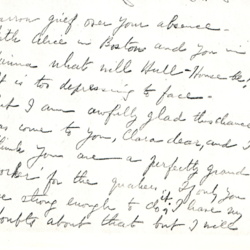 grief over your absence -
Alice in Boston and you in
what will Hull-House be,
It is too depressing to face -
I am awfully glad this chance
come to you, Clara dear, and I
think you are a perfectly grand
worker for the quakers, if only you
are strong enough to do it. I have my
doubts about that but I will